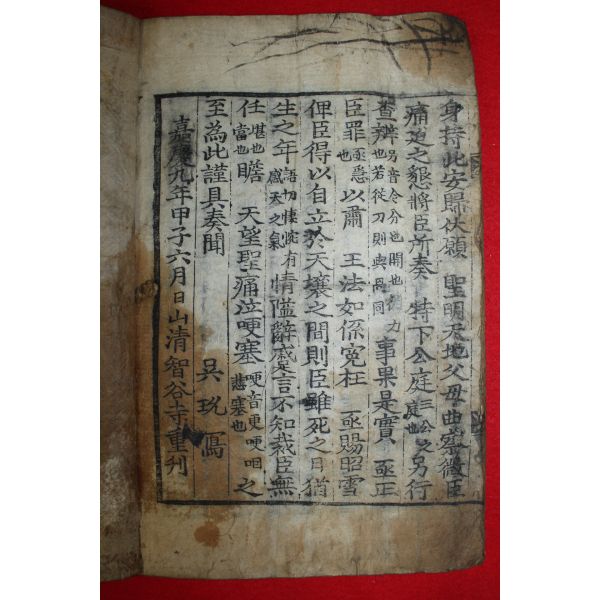 身持此安歸伏願 聖明天地父母曲察微臣
痛迫之懇將臣所奏 特下公庭三公之庭也另行
查辨另音令分也開也從力辨也若從刀則與另同事果是實 亟正
臣罪亟急也以肅 王法如係冤枉 亟賜昭雪
俾臣得以自立於天壤之間則臣雖死之日猶
生之年語切悽惋有感天之氣情隘辭蹙言不知裁臣無
任堪也當也瞻 天望聖痛泣哽塞哽音更哽咽之悲塞也
至為此謹具奏聞
吳玧寫
嘉慶九年甲子六月日山清智谷寺重刊